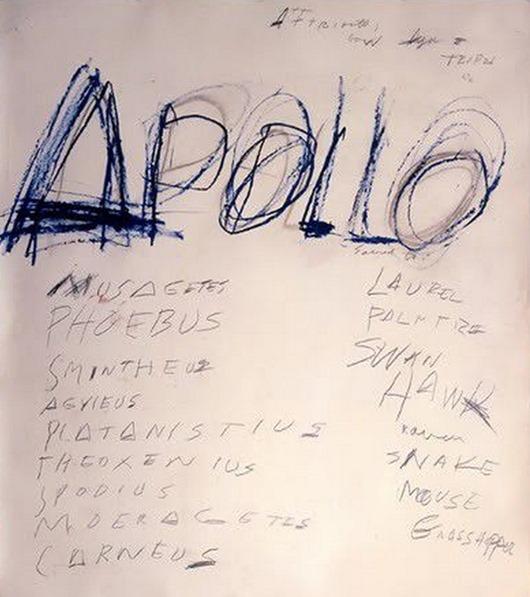 BOW
TRIPOD
APOLLO
Sacred to
MUSAGETES
PHOEBUS
SMINTHEUS
AGYIEUS
PLATANISTIUS
THEOXENIUS
SPODIUS
MOERAGETES
CARNEUS
LAUREL
PALM TREE
SWAN
HAWK
raven
SNAKE
MOUSE
GRASSHOPPER